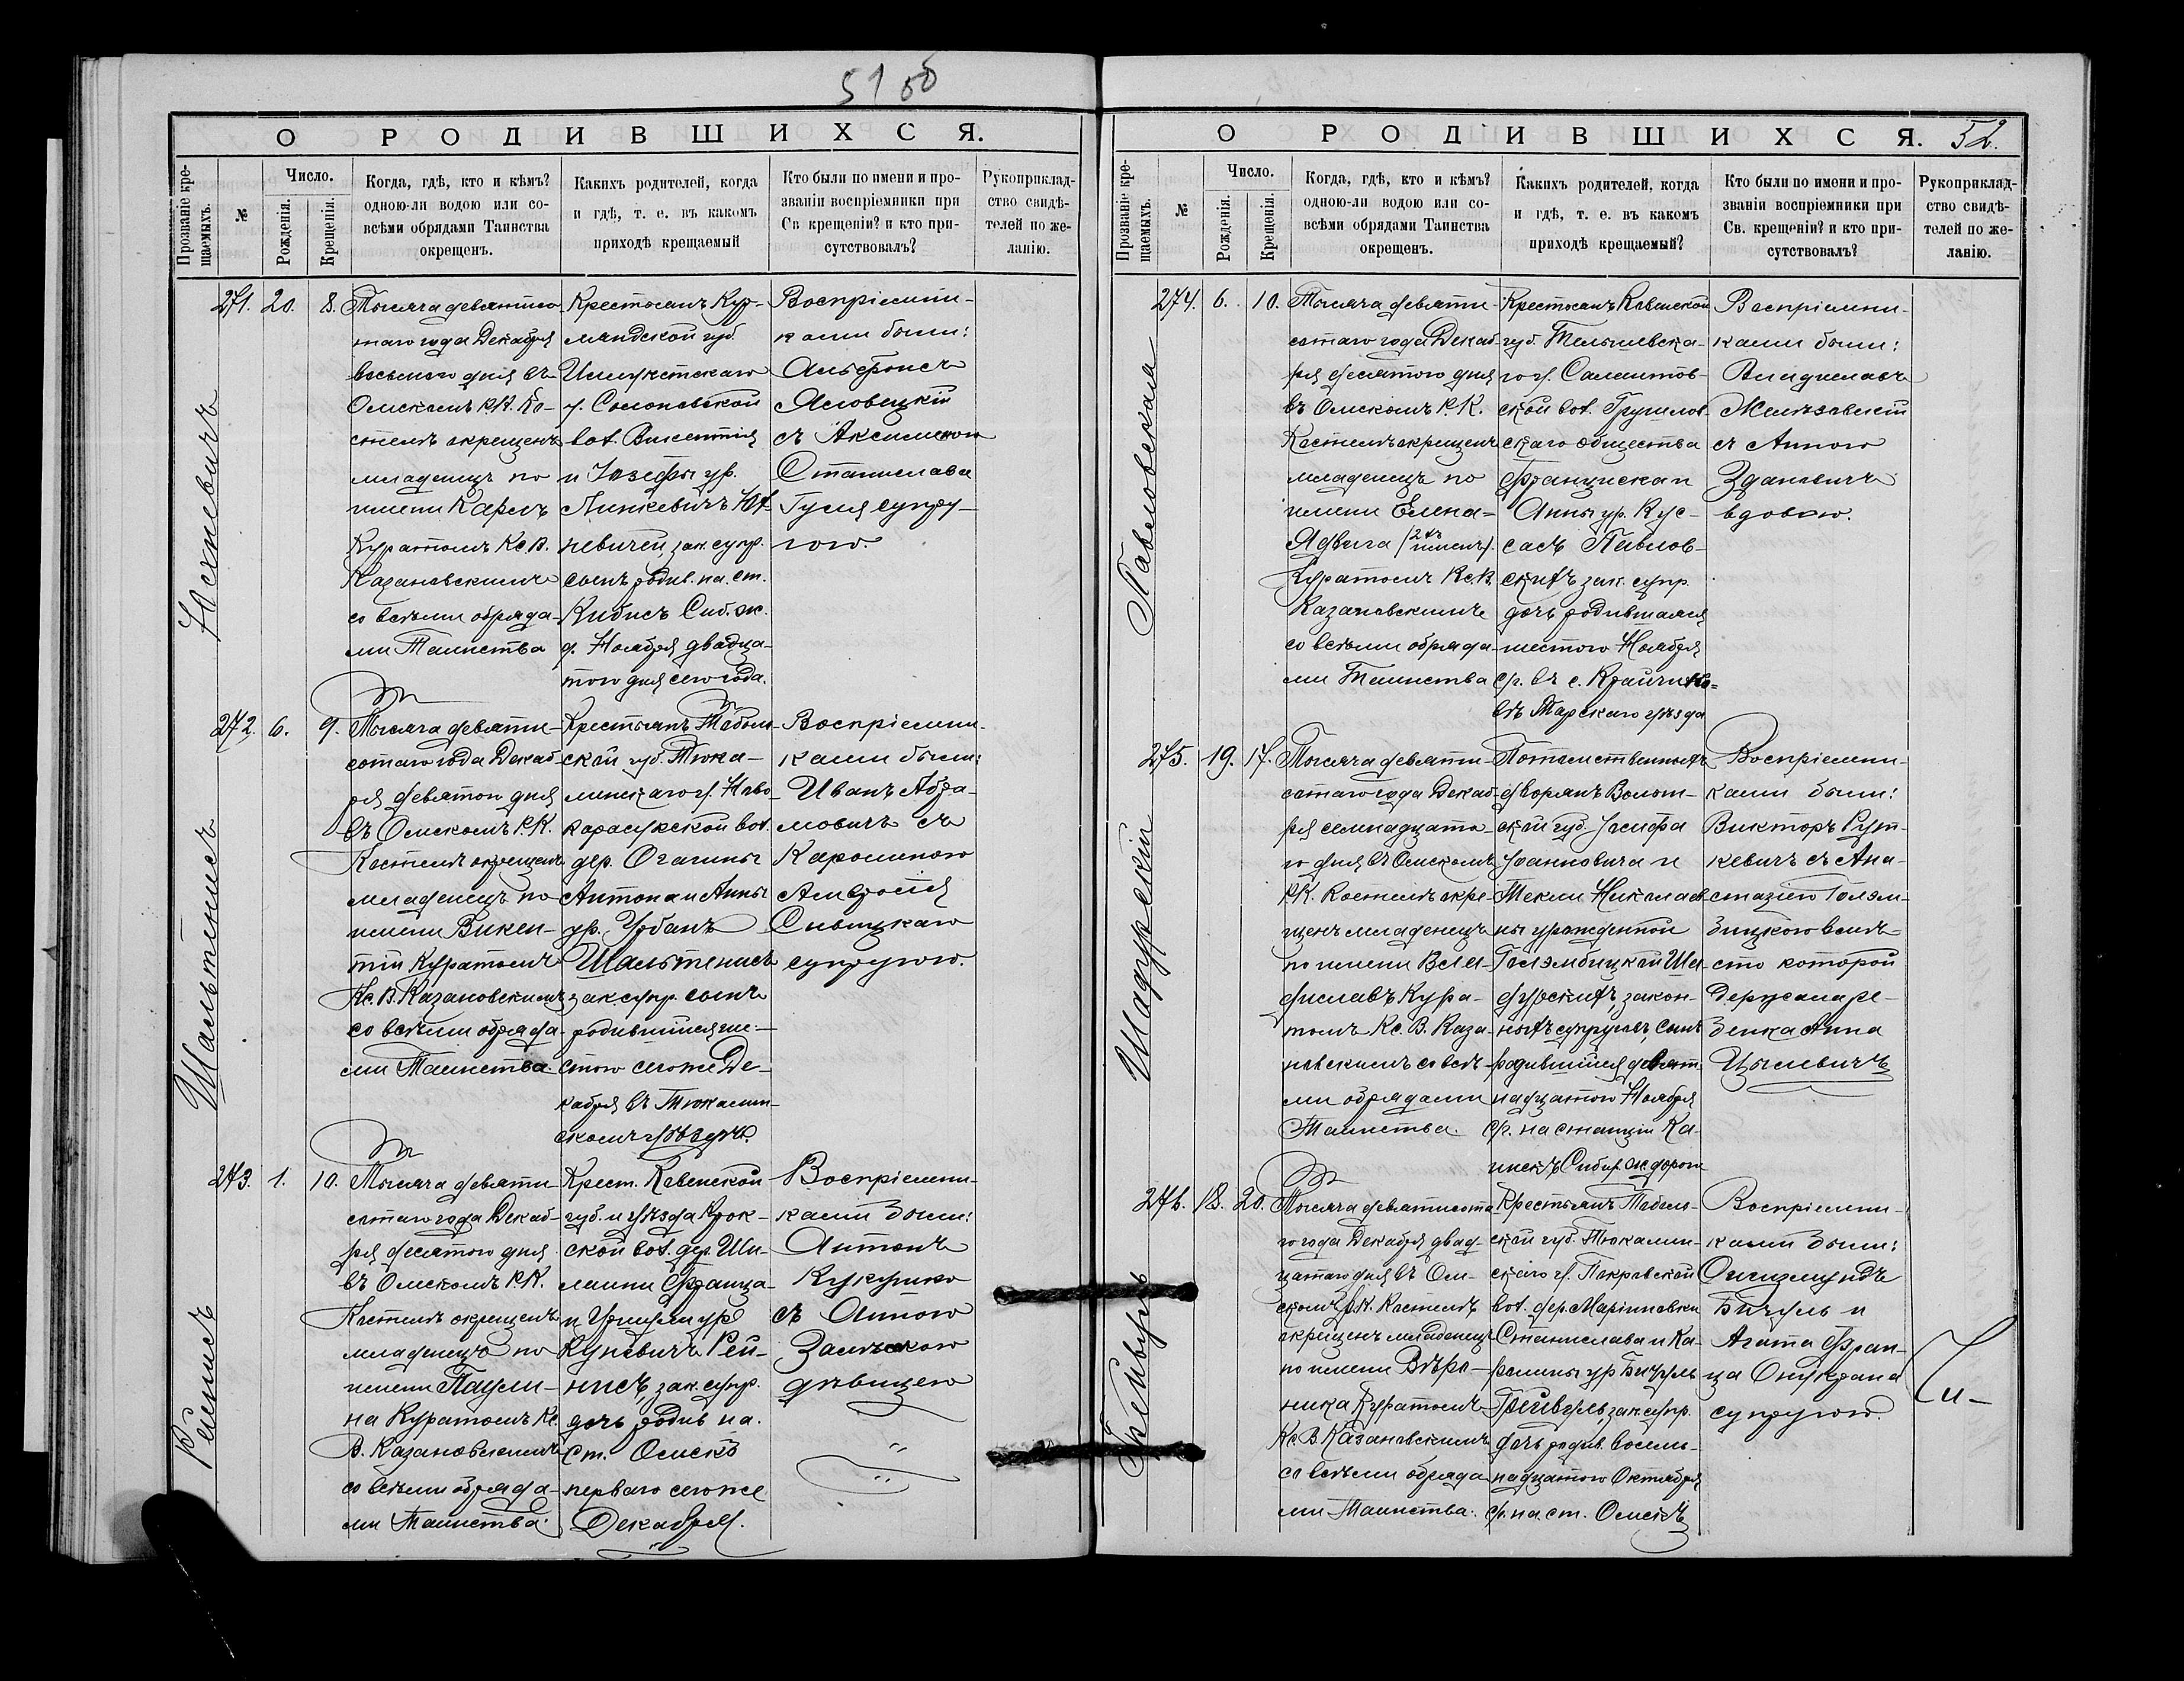 51 об
О РОДИВШИХСЯ.
Прозваніе кре-
щаемыхъ.
№
Число.
Рожденія.
Крещенія.
Когда, гдѣ, кто и кѣмъ?
одною-ли водою или со-
всѣми обрядами Таинства
окрещенъ.
Какихъ родителей, когда
и гдѣ, т. е. въ какомъ
приходѣ крещаемый
Кто были по имени и про-
званіи воспріемники при
Св крещеніи? и кто при-
сутствовалъ?
Рукоприклад-
ство свидѣ-
телей по же-
ланію.
Юхневичъ
271. 20. 8.
Тысяча девятисо
таго года Декабря
восьмого дня въ
Омскомъ Р.К. Ко-
стелѣ окрещенъ
младенецъ по
имени Карлъ
Куратомъ Кс. В.
Казановскимъ
со всѣми обряда-
ми Таинства
Крестьянъ Кур-
ляндской губ.
Иллукстскаго
у. Солонавской
вол. Викентія
и Юзефы ур.
Линкевичъ Юх-
невичей, зак. супр.
сынъ родив. на ст.
Кибисъ Сиб. ж.
д. Ноября двадца-
того дня сего года.
Воспріемни-
ками были:
Альфонсъ
Яловецкій
съ Аксиміею
Станислава
Гуся супру-
гою.
Шальтенисъ
272. 6. 9.
Тысяча девяти-
сотаго года Декаб-
ря девятого дня
въ Омскомъ Р.К.
Костелѣ окрещенъ
младенецъ по
имени Викен-
тій Куратомъ
Кс. В. Казановскимъ
со всѣми обряда-
ми Таинства.
Крестьянъ Тоболь-
ской губ. Тюка-
линскаго у. Ново-
карасукской вол.
дер.
Антона и Анны
ур. Урбанъ
Шальтенисъ
зак. супр. сынъ
родившійся ше-
стого сего же Де-
кабря въ Тюкалин-
скомъ уѣздѣ.
Воспріемни-
ками были:
Иванъ Абра-
мовичъ съ
Каролиною
Амвросія
Сивицкаго
супругою.
Рейнисъ
273. 1. 10.
Тысяча девяти-
сотаго года Декаб-
ря десятого дня
въ Омскомъ Р.К.
Костелѣ окрещенъ
младенецъ по
имени Паули-
на Куратомъ Кс.
В. Казановскимъ
со всѣми обряда-
ми Таинства.
Крест. Ковенской
губ. и уѣзда Крок-
ской вол. дер. Ши-
лини Франца
и Уршули ур
Куневичъ Рей-
нисъ, зак. супр.
дочь родив на.
Ст. Омскъ
перваго сего же
Декабря.
Воспріемни-
ками были:
Антонъ
Кукушко
съ Анною
дѣвицею
О РОДИВШИХСЯ. 52.
Прозваніе кре-
щаемыхъ.
№
Число.
Рожденія.
Крещенія.
Когда, гдѣ, кто и кѣмъ?
одною-ли водою или со-
всѣми обрядами Таинства
окрещенъ.
Какихъ родителей, когда
и гдѣ, т. е. въ какомъ
приходѣ крещаемый?
Кто были по имени и про-
званіи воспріемники при
Св. крещеніи? и кто при-
сутствовалъ?
Рукоприклад-
ство свидѣ-
телей по же-
ланію.
Павловская
274. 6. 10.
Тысяча девяти-
сотаго года Декаб-
ря десятого дня
въ Омскомъ Р.К.
Костелѣ окрещенъ
младенецъ по
имени Елена-
Ядвига (2хъ именъ).
Куратомъ Кс. В.
Казановскимъ
со всѣми обряда-
ми Таинства
Крестьянъ Ковенской
губ. Тельшевска-
го у. Салантов-
ской вол. Грушлов-
скаго общества
Франциска и
Анны ур. Рус-
сасъ Павлов-
скихъ зак. супр.
дочь родившаяся
шестого Ноября
с/г. въ с. Крайчико-
вѣ Тарскаго уѣзда
Воспріемни-
ками были:
Владиславъ
съ Анною
Здановичъ
вдовою.
Шадурскій
275. 19. 17.
Тысяча девяти-
сотаго года Декаб-
ря семнадцата-
го дня въ Омскомъ
Р.К. Костелѣ окре-
щенъ младенецъ
по имени Вла-
диславъ Кура-
томъ Кс. В. Каза-
новскимъ со всѣ-
ми обрядами
Таинства.
Потомственныхъ
дворянъ Волын-
ской губ. Іосифа
Іоанновича и
Теклы Николаев-
ны урожденной
Голэмбицкой Ша-
дурскихъ, закон-
ныхъ супруговъ, сынъ
родившійся девят-
надцатого Ноября
с/г. на станціи Ка-
инскъ Сибир. ж дороги
Воспріемни-
ками были:
Викторъ Рут-
кевичъ съ Ана-
стазіею Голэм-
бицкою вмѣ-
сто которой
держала ре-
бенка Анна
Грейвуль
276. 18. 20.
Тысяча девятисота
го года Декабря двад-
цатаго дня въ Ом-
скомъ Р.К. Костелѣ
окрещенъ младенецъ
по имени Вѣро-
ника Куратомъ
Кс. В. Казановскимъ
со всѣми обряда
ми Таинства.
Крестьянъ Тоболь-
ской губ. Тюкалин-
скаго у. Покровской
вол. дер. Маріиновки
Станислава и Ка-
ролины ур Бичуль
Грейвуль, зак. супр.
дочь родив. восем-
надцатого Октября
с/г. на ст. Омскъ
Воспріемни-
ками были:
Сигизмундъ
Бичуль и
Агата Фран-
ца
супругою.